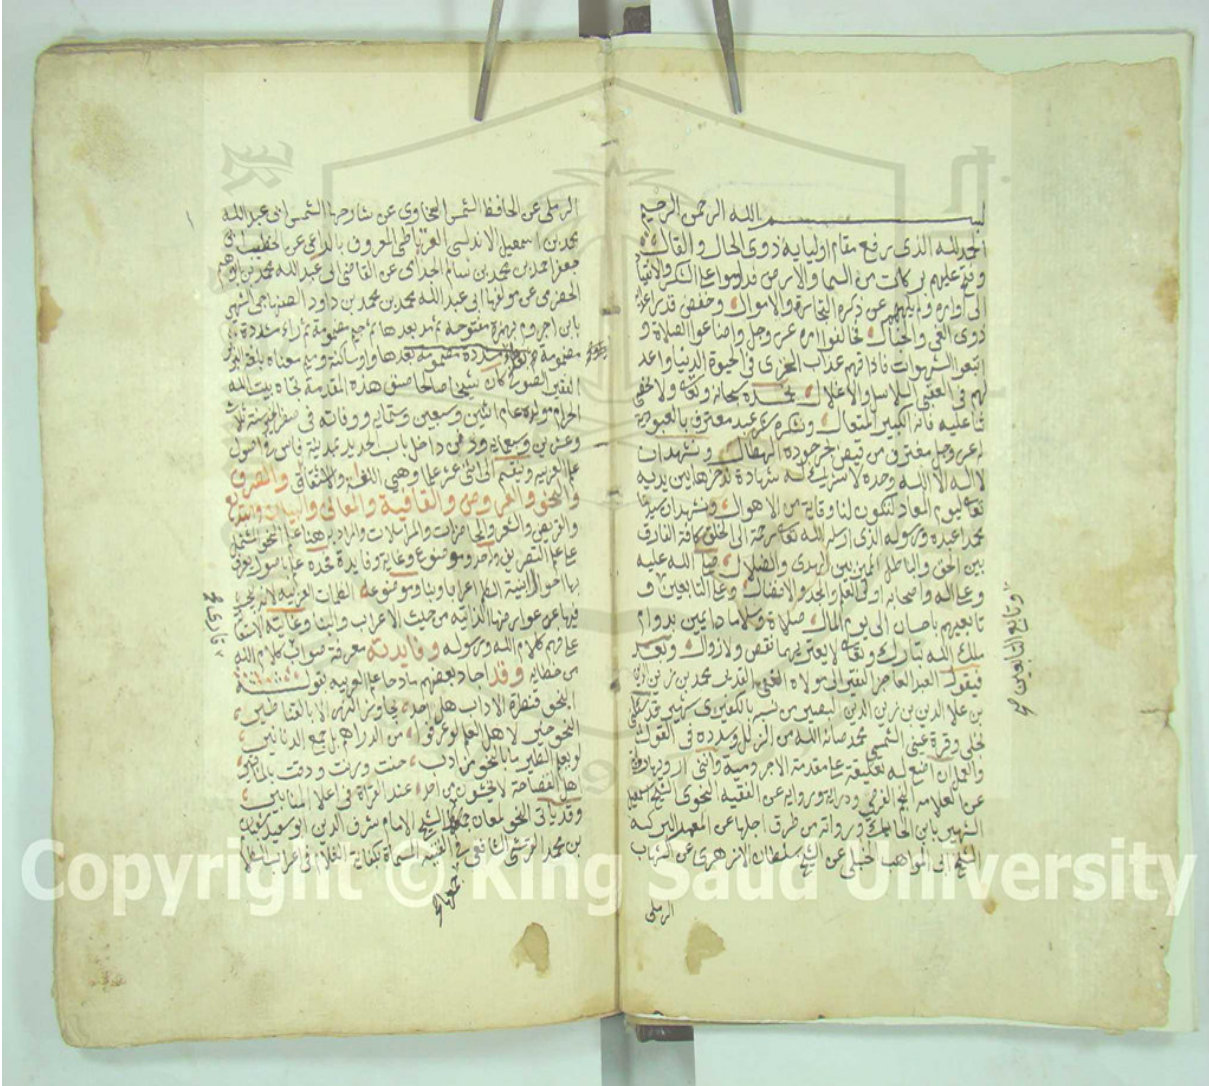 بسم الله الرحمن الرحيم
الحمد لله الذي رفع مقام اوليايه ذوى الحال والقال
وفتح عليهم بركات من السما والارض فداوموا على الشكر والانقياد
الى اوامره ولم يلههم عن ذكره التجارة والاموال وخفض قدر اعدايه
ذوى الغى فخالفوا امره عز وجل واضاعوا الصلاة و
اتبعوا الشهوات فاذاقهم عذاب الخزى في الحيوة الدنيا واعد
لهم في العقبى السلاسل والاغلال نحمده سبحانه وتعالى ولا نحصى
ثنا عليه فانه الكبير المتعال ونشكره شكر عبد معترف بالعبودية
له عز وجل مغترف من فيض بحر جوده الهطال ونشهد ان
لا اله الا الله وحده لا شريك له شهادة ندخرها بين يديه
تعالى ليوم المعاد لتكون لنا وقاية من الاهوال ونشهد ان سيدنا
محمدا عبده ورسوله الذى ارسله الله تعالى رحمة الى الخلق كافة الفارق
بين الحق والباطل المبين بين الهدى والضلال صلى الله عليه
وعلى اله واصحابه اولى العلم والجد والافضال وعلى التابعين و
تابعيهم باحسان الى يوم المال صلاة وسلاما دايمين بدوام
ملك الله تبارك وتعالى لا يعتريهما نقص ولا زوال وبعد
فيقول العبد العاجز الفقير الى مولاه الغنى القدير محمد بن
بن علا الدين بن زين الدين البصير من نسبه بالكفيرى شهير قد سالنى
نجلى وقرة عينى الشمسى محمد صانه الله من الزلل وسدده في القول
والعمل ان اضع له تعليقة على مقدمة الاجرومية وانني ارويها رواية
عن العلامة النجم الفرضى ودراية ورواية عن الفقيه النحوى الشيخ اسمعيل
الشهير بابن الحايك ورواية من طرق اجلها عن المعمر البركة
الشيخ ابى المواهب الحنبلى عن الشيخ سلطان الازهرى عن الشهاب
الرملى
وتابع التابعين
الرملى عن الحافظ الشمس السخاوى عن شارحها الشمس ابى عبد الله
محمد بن اسمعيل الاندلسى الغرناطى المعروف بالراعى عن الخطيب ابى
جعفر احمد بن محمد بن سالم الجذامى عن القاضى ابى عبد الله محمد بن ابراهيم
الحضرمى عن مولفها ابى عبد الله محمد بن محمد بن داود الصنهاجى الشهير
بابن اجروم بهمزة مفتوحة بمد بعدها ثم جيم مضمومة ثم راء مشددة
مضمومة بعدها واو ساكنة وميم معناه بلغة البربر
الفقير الصوفى كان شيخا صالحا صنف هذه المقدمة تجاه بيت الله
الحرام مولده عام اثنين وسبعين وستماية ووفاته في صفر الخير سنة ثلاث
وعشرين وسبعماية ودفن داخل باب الحديد بمدينة فاس
علم العربية وينقسم الى اثنى عشر علما وهي اللغة والاشتقاق والصرف
والنحو والعروض والقافية والمعانى والبيان والبديع
والقريض والشعر والمحاضرات والمراسلات والمراد به هنا علم النحو المشتمل
على علم التصريف وله حد وموضوع وغاية وفايدة فحده علم باصول يعرف
بها احوال ابنية الكلم اعرابا وبنا وموضوعه الكلمات العربية لانه يبحث
فيها عن عوارضها الذاتية من حيث الاعراب والبنا وغايته الاستعانة
على فهم كلام الله ورسوله وفايدته معرفة صواب كلام الله
من خطايه وقد اجاد بعضهم مادحا علم العربية بقوله
النحو قنطرة الاداب هل احد يجاوز النهر الا بالقناطير
النحو خير لاهل العلم لو عرفوا من الدراهم بل جمع الدنانير
لو يعلم الطير ما بالنحو من ادب حنت ورنت ودقت بالمناقير
اهل الفصاحة لا يخشون من احد عند القراة في اعلا المنابير
وقد ياتى النحو لمعان جمعها الشيخ الامام شرف الدين ابو سعيد شعبان
بن محمد القرشى الشافعى في الفيته المسماة بكفاية الغلام في اعراب الكلام
Copyright © King Saud University